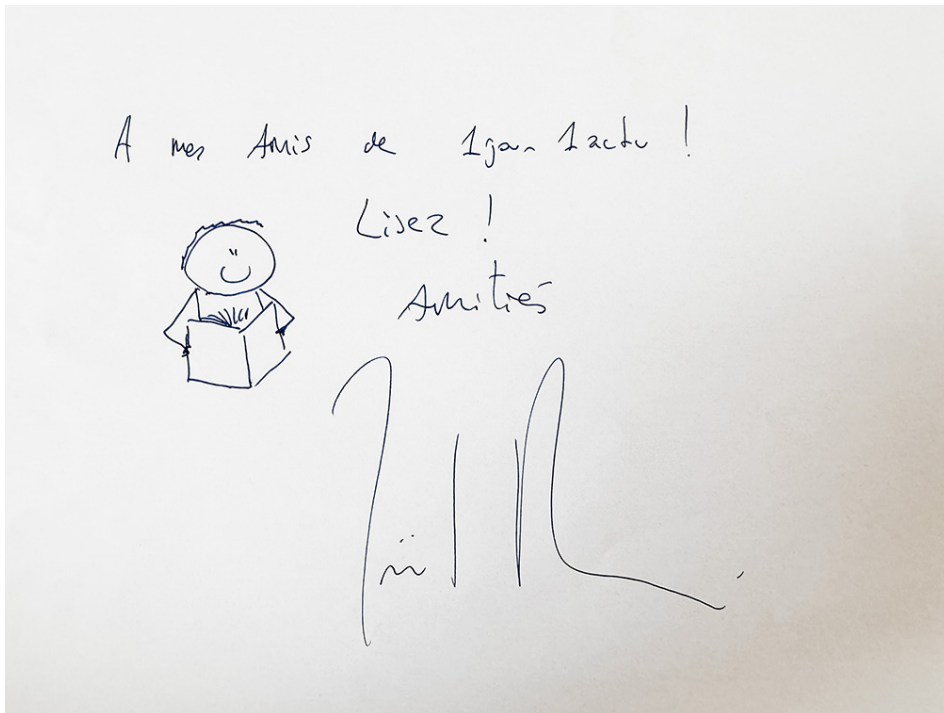 A mes Amis de 1jour 1actu !
Lisez !
Amitiés